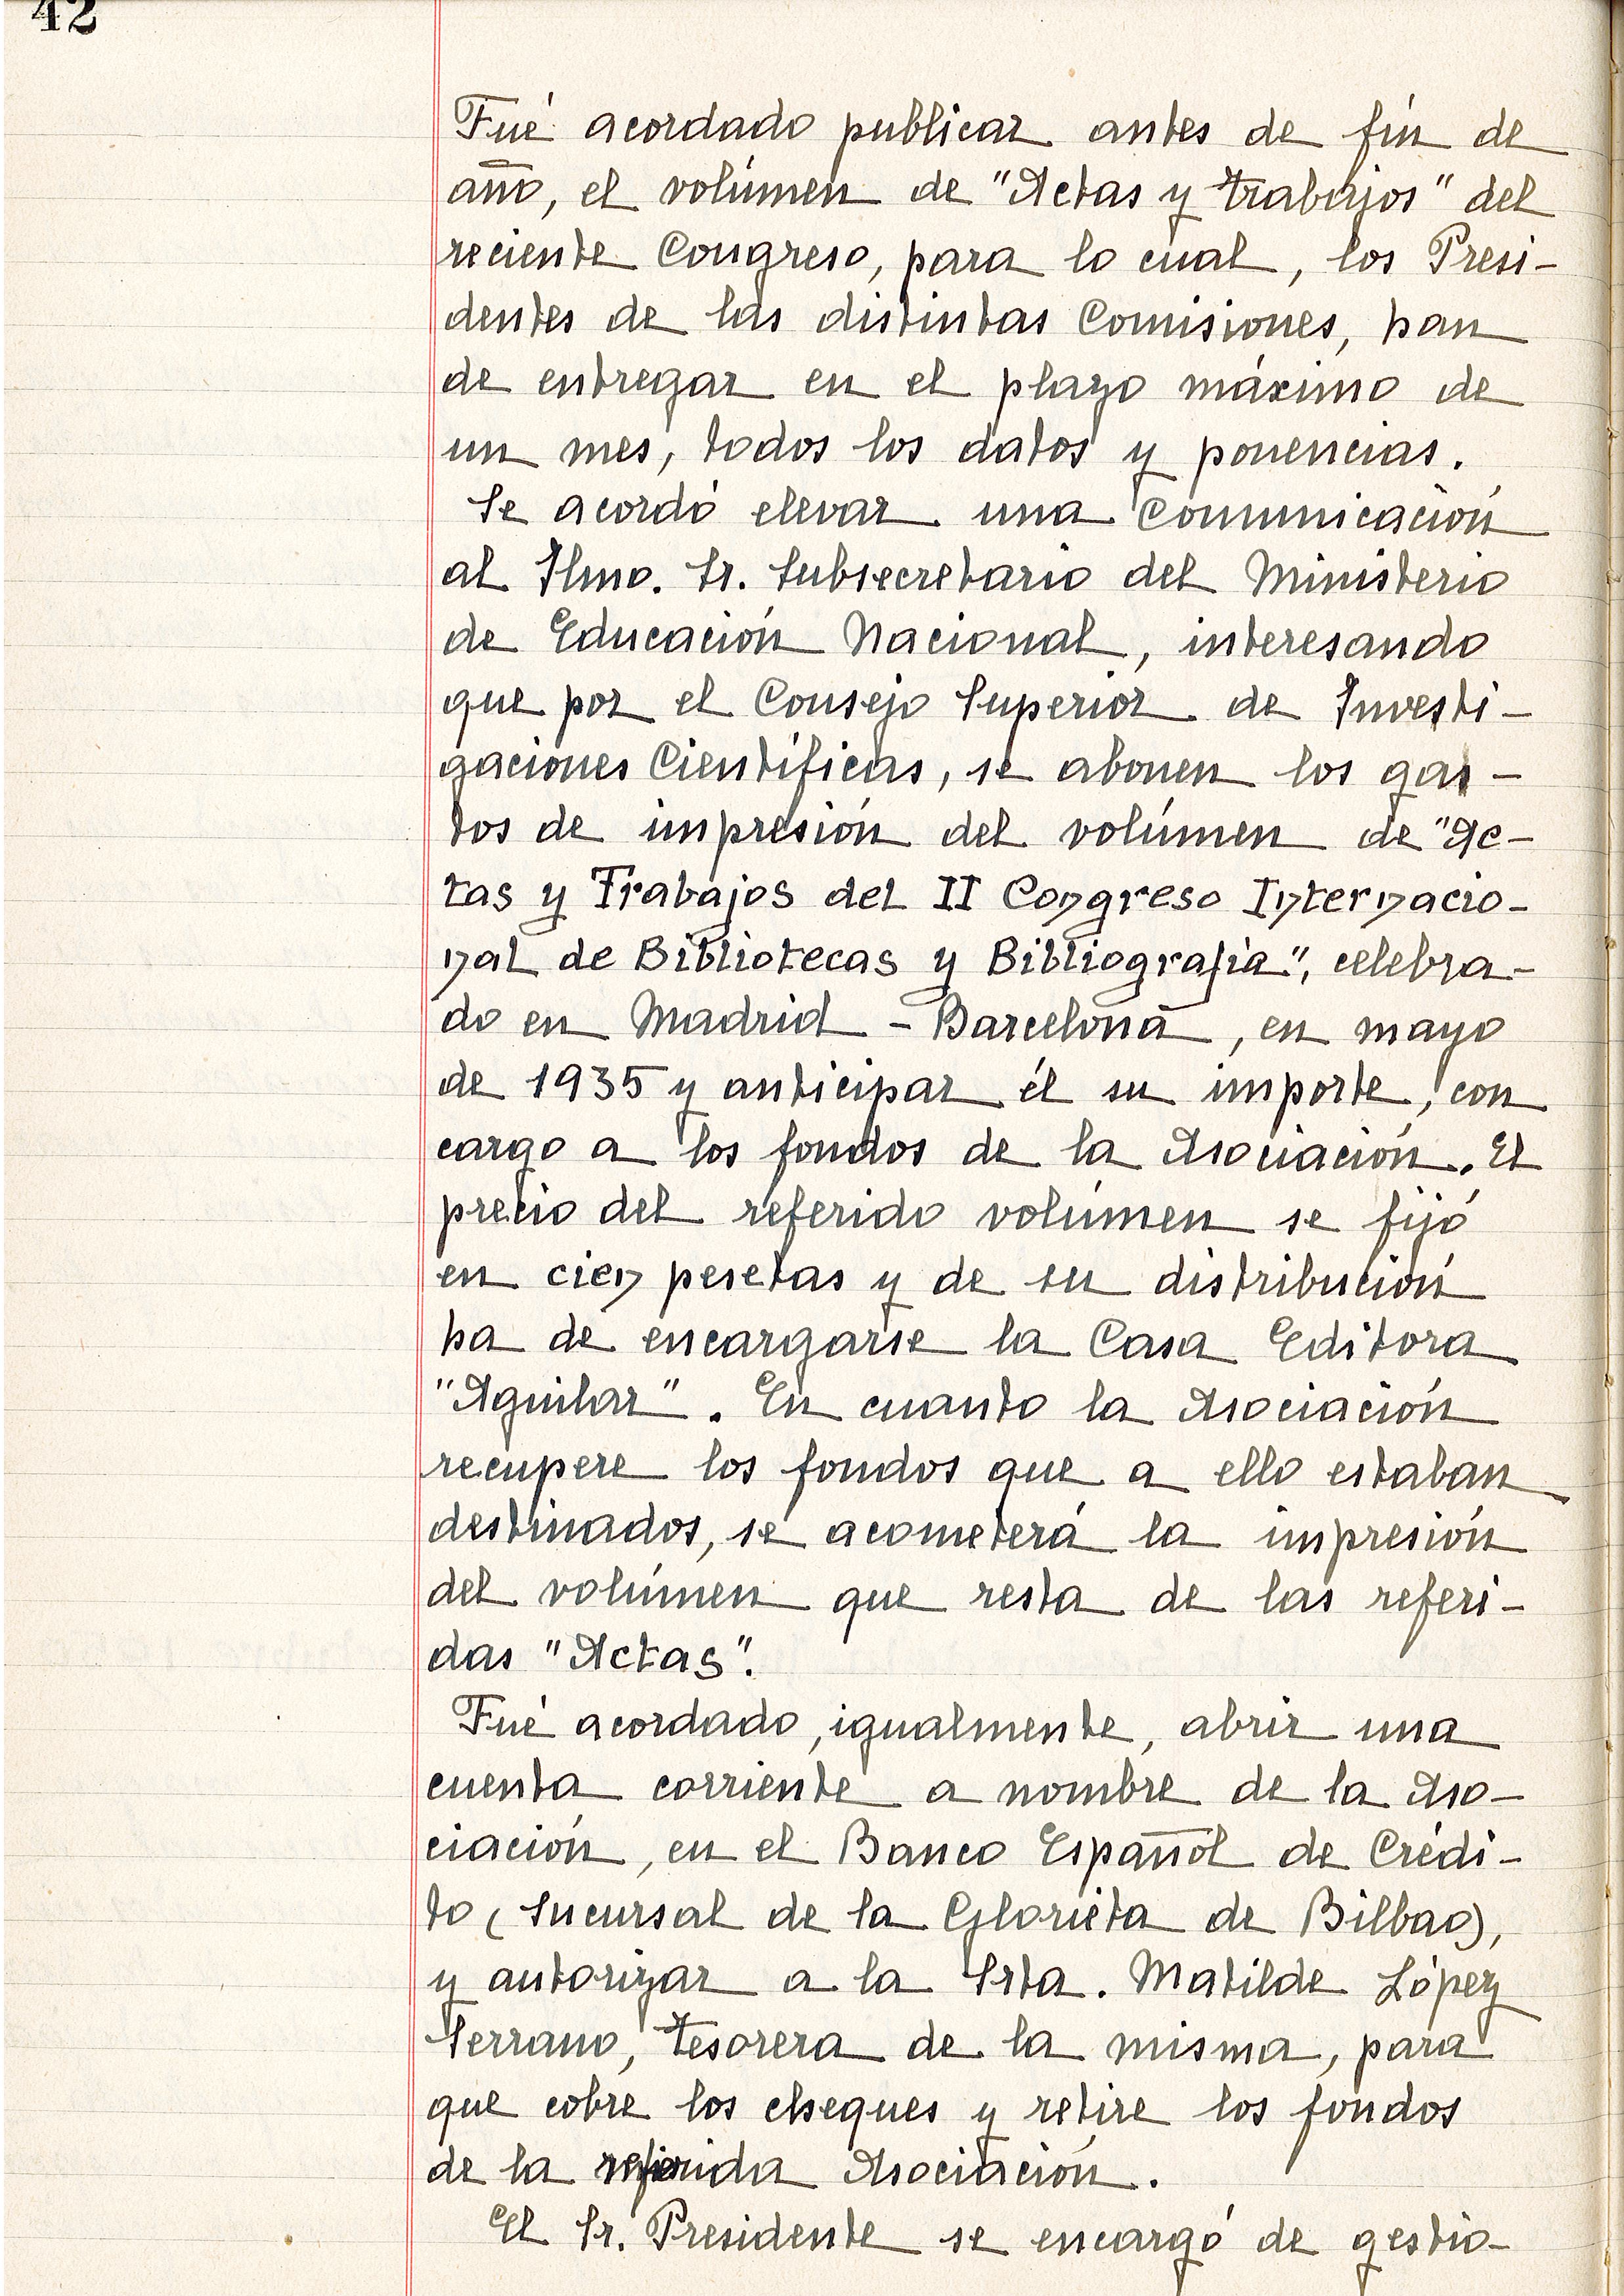 42
Fué acordado publicar antes de fín de
año, el volúmen de "Actas y trabajos" del
reciente Congreso, para lo cual, los Presi-
dentes de las distintas Comisiones, han
de entregar en el plazo máximo de
un mes, todos los datos y ponencias.
Se acordó elevar una Comunicación
al Ilmo. Sr. Subsecretario del Ministerio
de Educación Nacional, interesando
que por el Consejo Superior de Investi-
gaciones Científicas, se abonen los gas-
tos de impresión del volúmen de "Ac-
tas y Trabajos del II Congreso Internacio-
nal de Bibliotecas y Bibliografía", celebra-
do en Madrid - Barcelona, en mayo
de 1935 y anticipar él su importe, con
cargo a los fondos de la Asociación. El
precio del referido volúmen se fijó
en cien pesetas y de su distribución
ha de encargarse la Casa Editora
"Aguilar". En cuanto la Asociación
recupere los fondos que a ello estaban
destinados, se acometerá la impresión
del volúmen que resta de las referi-
das "Actas".
Fué acordado, igualmente, abrir una
cuenta corriente a nombre de la Aso-
ciación, en el Banco Español de Crédi-
to (Sucursal de la Glorieta de Bilbao),
y autorizar a la Srta. Matilde López
Serrano, tesorera de la misma, para
que cobre los cheques y retire los fondos
de la referida Asociación.
El Sr. Presidente se encargó de gestio-